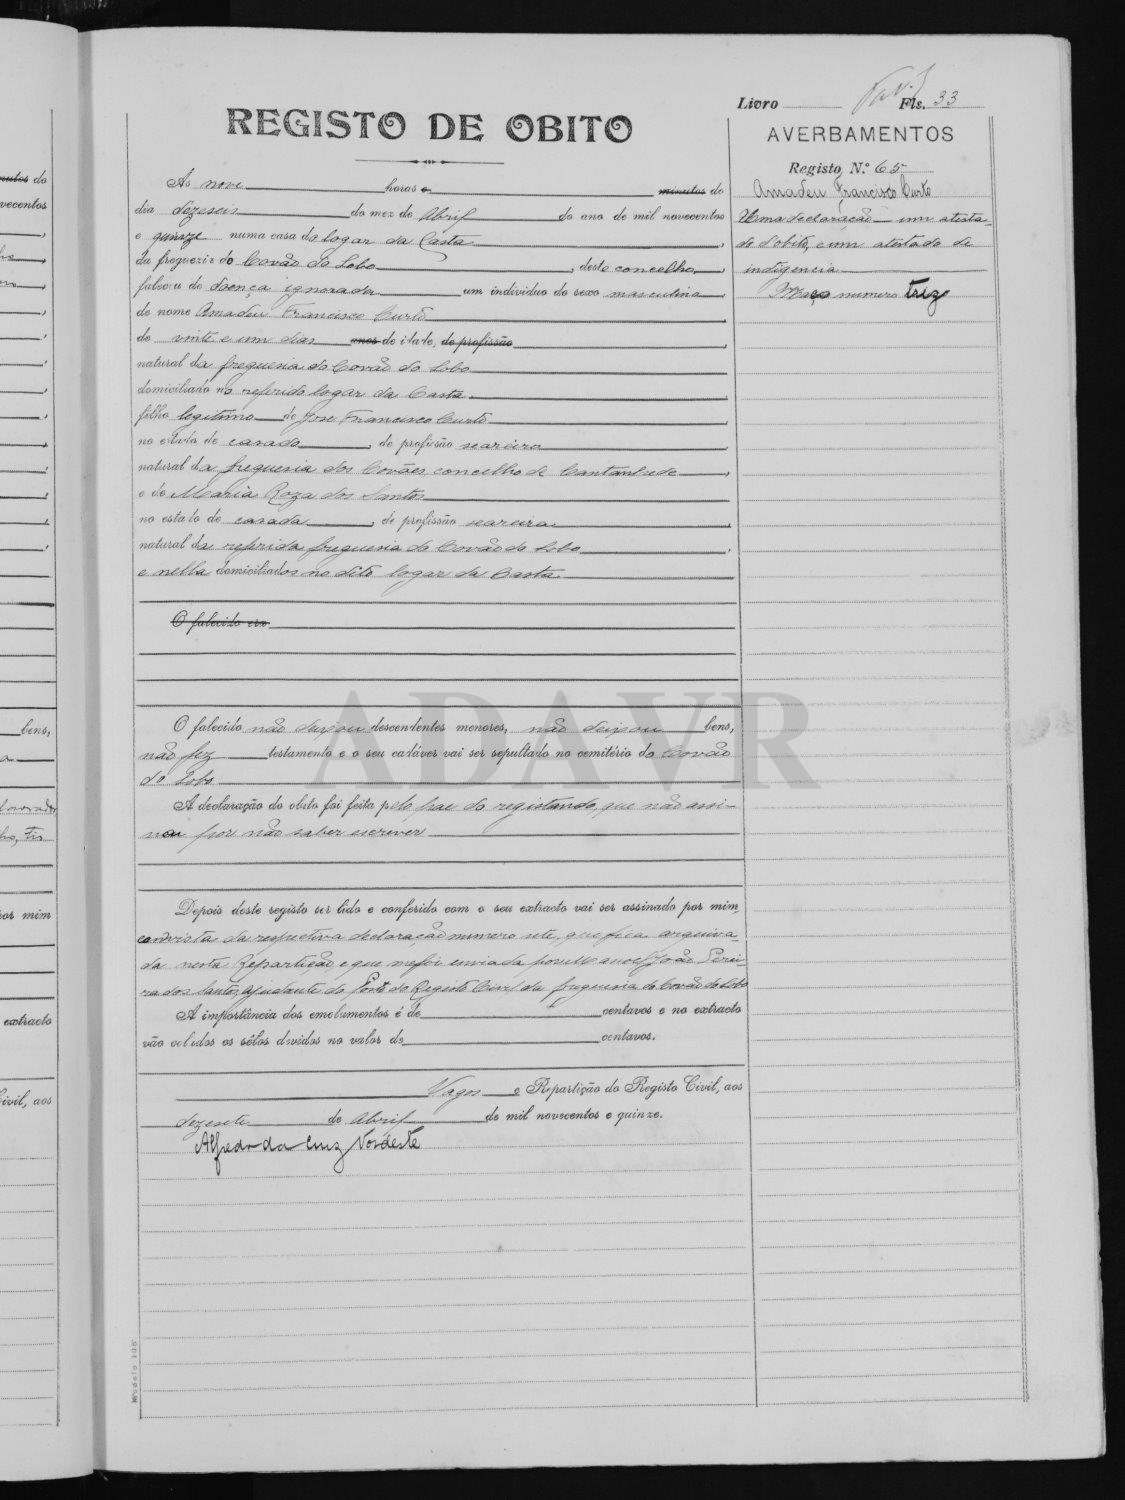 Livro Fls. 33
REGISTO DE OBITO
AVERBAMENTOS
Registo N.º 65
Amadeu Francisco Curto
Uma declaração um atesta-
do d'obito, e um atestado de
indigencia
Maço numero trez
As nove horas e minutos do
dia dezeseis do mez de Abril do ano de mil novecentos
e quinze numa casa do logar da Casta,
da freguezia do Covão do Lobo, deste concelho,
faleceu de doença ignorada um individuo do sexo masculino
de nome Amadeu Francisco Curto,
de vinte e um dias anos de idade, de profissão
natural da freguesia do Covão do Lobo
domiciliado no referido logar da Casta,
filho legitimo de José Francisco Curto,
no estado de casado, de profissão seareiro
natural da freguesia dos Covões, concelho de Cantanhede,
e de Maria Roza dos Santos
no estado de casada, de profissão seareira,
natural da referida freguesia do Covão do Lobo,
e nella domiciliados no dito logar da Casta.
O falecido era
O falecido não deixou descendentes menores, não deixou bens,
não fez testamento e o seu cadáver vai ser sepultado no cemitério do Covão
do Lobo
A declaração do obito foi feita pelo pae do registando, que não assi-
nou por não saber escrever
Depois deste registo ser lido e conferido com o seu extracto vai ser assinado por mim,
em vista da respectiva declaração numero sete, que fica arquiva-
da nesta Repartição e que me foi enviada por Manoel João Perei-
ra dos Santos, ajudante do Posto do Registo Civil da freguesia do Covão do Lobo
A importância dos emolumentos é de centavos e no extracto
vão colados os sêlos devidos no valor de centavos.
Vagos e Repartição do Registo Civil, aos
dezesete de Abril de mil novecentos e quinze.
Alfredo da Cruz Nordeste
Modelo 136
ADAVR
minutos do
novecentos
bens,
por mim
extracto
Civil, aos